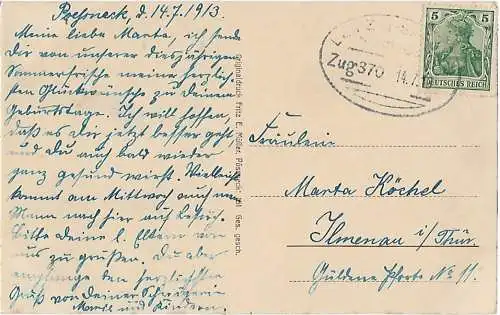 Poessneck, d. 14.7.1913.
Meine liebe Marta, ich sende
Dir von unserer diesjährigen
Sommerfrische meine herzlich-
sten Glückwünsche zu Deinem
Geburtstage. Ich will hoffen,
daß es Dir jetzt besser geht
und Du auch bald wieder
ganz gesund wirst. Vielleicht
kommt am Mittwoch auch mein
Mann nach hier auf Besuch.
Bitte Deine l. Eltern von
uns zu grüßen. Du aber
empfange den herzlichsten
Gruß von Deiner Schwägerin
und Kindern.
Originaldruck Fritz E. Müller, Pössneck i. Th. Ges. gesch.
Zug 370 14.7.
5 5
DEUTSCHES REICH
Fräulein
Marta Köchel
Ilmenau i/Thür.
Güldene Pforte No 11.